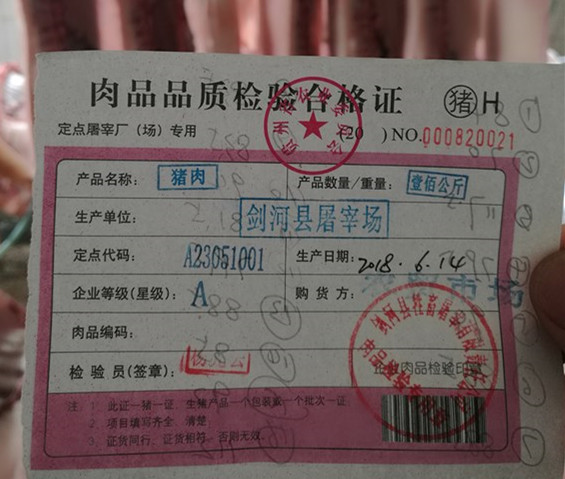 肉品品质检验合格证 猪 H
定点屠宰厂（场）专用 （20 ）NO.000820021
产品名称： 猪肉 产品数量/重量： 壹佰公斤
生产单位： 剑河县屠宰场
定点代码： A23051001 生产日期： 2018.6.14
企业等级(星级)： A 购货方： 农贸市场
肉品编码：
检验员(签章)： 企业肉品检验印章
注：1、此证一猪一证，生猪产品一个包装或一个批次一证
2、项目填写齐全，清楚
3、证货同行，证货相符，否则无效。